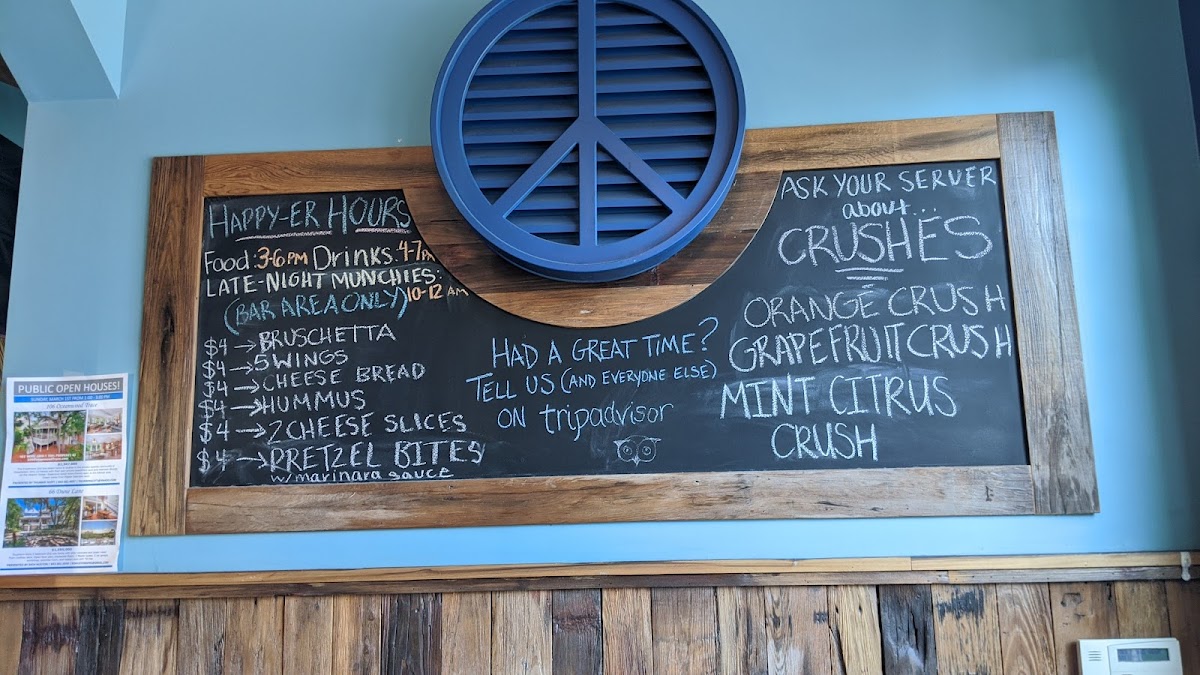 HAPPY-ER HOURS
Food: 3-6 PM Drinks: 4-7 PM
LATE-NIGHT MUNCHIES:
(BAR AREA ONLY) 10-12 AM
$4 → BRUSCHETTA
$4 → 5 WINGS
$4 → CHEESE BREAD
$4 → HUMMUS
$4 → 2 CHEESE SLICES
$4 → PRETZEL BITES
w/marinara sauce
HAD A GREAT TIME?
TELL US (AND EVERYONE ELSE)
ON tripadvisor
ASK YOUR SERVER
about...
CRUSHES
ORANGE CRUSH
GRAPEFRUIT CRUSH
MINT CITRUS
CRUSH
PUBLIC OPEN HOUSES!